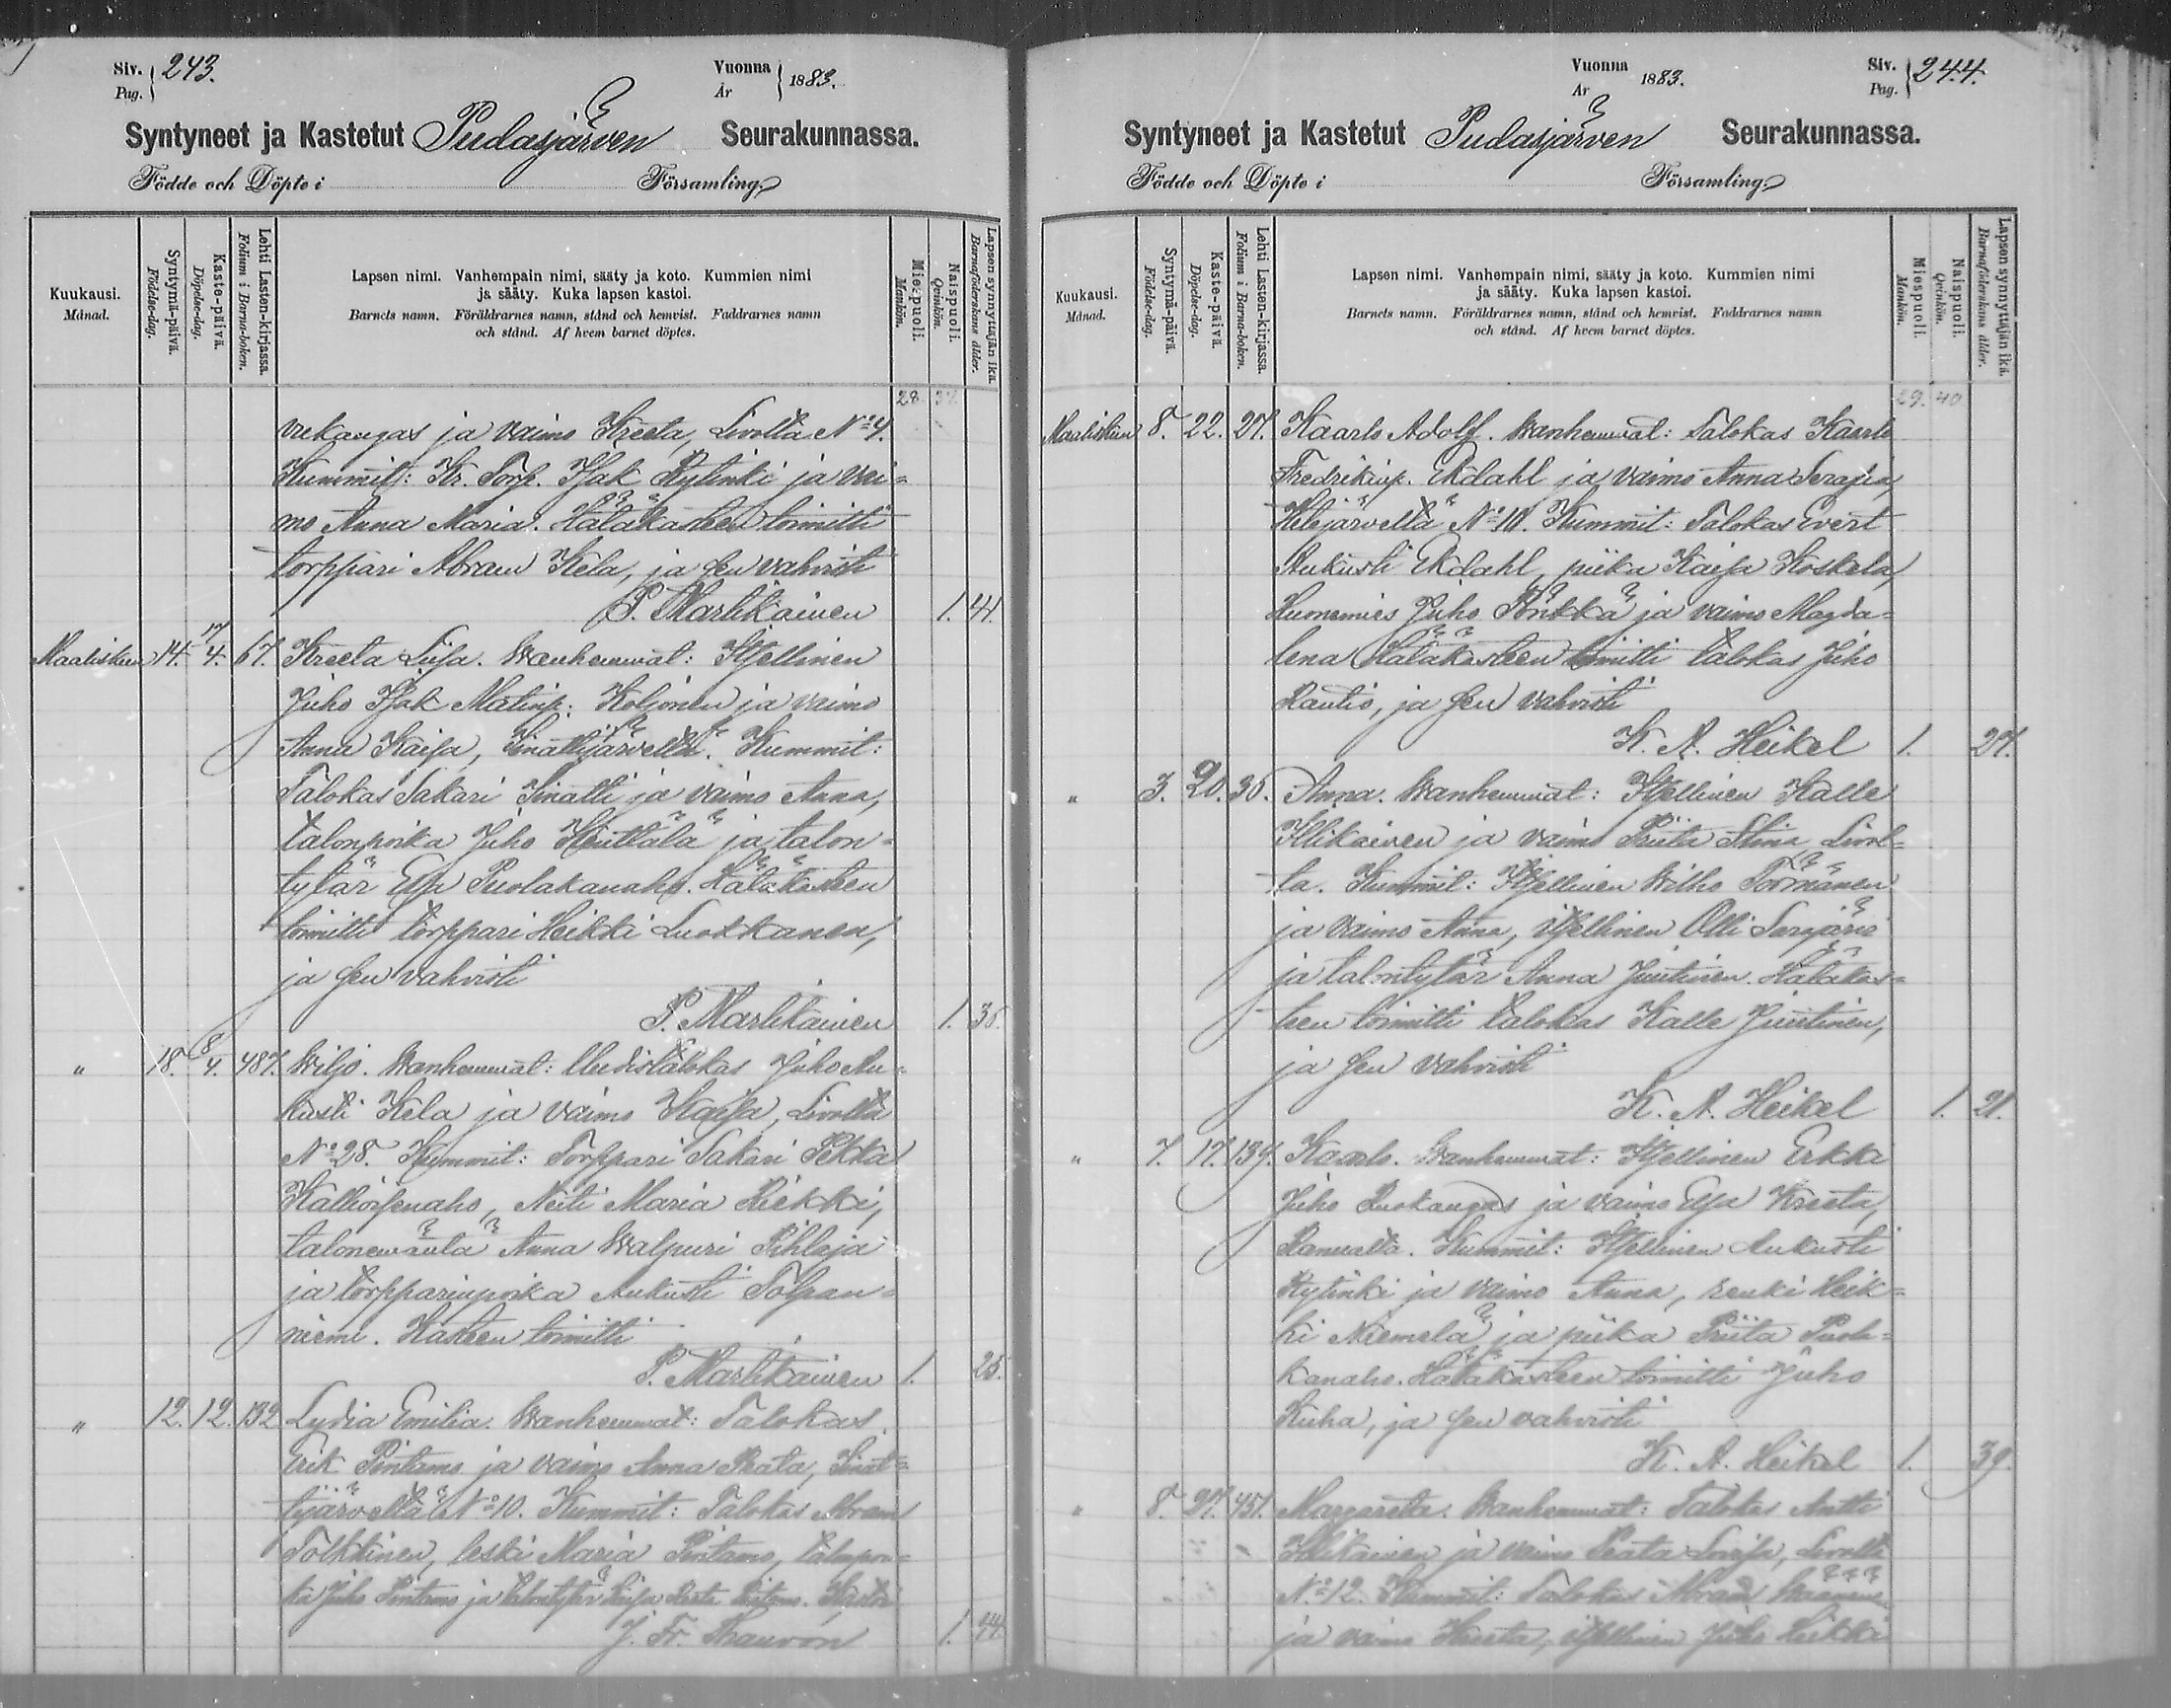 Siv. Pag. 243. Vuonna År 1883.
Syntyneet ja Kastetut Pudasjärven Seurakunnassa.
Födde och Döpte i Församling.
Kuukausi. Månad.
Syntymä-päivä. Födelse-dag.
Kaste-päivä. Döpelse-dag.
Lehti Lasten-kirjassa. Folium i Barna-boken.
Lapsen nimi. Vanhempain nimi, sääty ja koto. Kummien nimi
ja sääty. Kuka lapsen kastoi.
Barnets namn. Föräldrarnes namn, stånd och hemvist. Faddrarnes namn
och stånd. Af hvem barnet döptes.
Miespuoli. Mankön.
Naispuoli. Qvinkön.
Lapsen synnyttäjän ikä. Barnaföderskans ålder.
28. 37
ja vaimo Kreeta, Livolta No 4.
Kummit: Kr. Torp. Isak Rytinki ja vai-
mo Anna Maria. Hätäkasteen toimitti
torppari Abram Kela, ja sen vahvisti
P. Martikainen 1. 41.
Maaliskuu 14. 17/4. 67. Kreeta Liisa. Wanhemmat: Itsellinen
Juho Isak Matinp. Koljonen ja vaimo
Anna Kaisa, Sinattijärveltä. Kummit:
Talokas Sakari Sinatti ja vaimo Anna,
talonpoika Juho ja talon-
tytär Eva Puolakanaho. Hätäkasteen
toimitti torppari Heikki Luokkanen,
ja sen vahvisti
P. Martikainen 1. 35.
" 18. 8/4. 487. Wiljo. Wanhemmat: Uudistalokas Juho Au-
kusti Kela ja vaimo Kaisa, Livolta
No 28. Kummit: Torppari Sakari Pekka
Kalliorpenaho, Neiti Maria Riekki,
talonemäntä Anna Walpuri Pihlaja
ja torpparinpoika Aukusti Tolpan-
niemi. Kasteen toimitti
P. Martikainen 1. 25.
" 12. 12. 132 Lydia Emilia. Wanhemmat: Talokas
Erik Pintamo ja vaimo Anna Reeta, Sinat-
tijärveltä No 10. Kummit: Talokas Abram
Tolkkinen, leski Maria Pintamo, talonpoi-
ka Juho Pintamo ja talontytär Pintamo. Kastoi
J. Fr. Thauvón 1. 44.
Vuonna År 1883. Siv. Pag. 244.
Syntyneet ja Kastetut Pudasjärven Seurakunnassa.
Födde och Döpte i Församling.
Kuukausi. Månad.
Syntymä-päivä. Födelse-dag.
Kaste-päivä. Döpelse-dag.
Lehti Lasten-kirjassa. Folium i Barna-boken.
Lapsen nimi. Vanhempain nimi, sääty ja koto. Kummien nimi
ja sääty. Kuka lapsen kastoi.
Barnets namn. Föräldrarnes namn, stånd och hemvist. Faddrarnes namn
och stånd. Af hvem barnet döptes.
Miespuoli. Mankön.
Naispuoli. Qvinkön.
Lapsen synnyttäjän ikä. Barnaföderskans ålder.
29. 40
Maaliskuu 8. 22. 27. Kaarlo Adolf. Wanhemmat: Talokas Kaarle
Fredrikinp. Ekdahl ja vaimo Anna Serafia,
No 10. Kummit: Talokas Evert
Aukusti Ekdahl, piika Kaisa Koskela,
Huonemies Juho ja vaimo Magda-
lena. Hätäkasteen toimitti talokas Juho
Rautio, ja sen vahvisti
K. A. Heikel 1. 27.
" 3. 20. 35. Anna. Wanhemmat: Itsellinen Kalle
Illikainen ja vaimo Priita Stina, Livol-
ta. Kummit: Itsellinen Wilho Törmänen
ja vaimo Anna, itsellinen Olli Sarajärvi
ja talontytär Anna Juutinen. Hätäkas-
teen toimitti talokas Kalle Juutinen,
ja sen vahvisti
K. A. Heikel 1. 21.
" 7. 17. 139. Kaarlo. Wanhemmat: Itsellinen Erkki
Juho Ruokangas ja vaimo Eva Kreeta,
Ranualta. Kummit: Itsellinen Aukusti
Rytinki ja vaimo Anna, renki Heik-
ki Niemelä ja piika Priita Puola-
kanaho. Hätäkasteen toimitti Juho
Kuha, ja sen vahvisti
K. A. Heikel 1. 39.
" 8. 27. 451. Margareeta. Wanhemmat: Talokas Antti
Illikainen ja vaimo Reeta Loviisa, Livolta
No 12. Kummit: Talokas Abram
ja vaimo itsellinen Juho